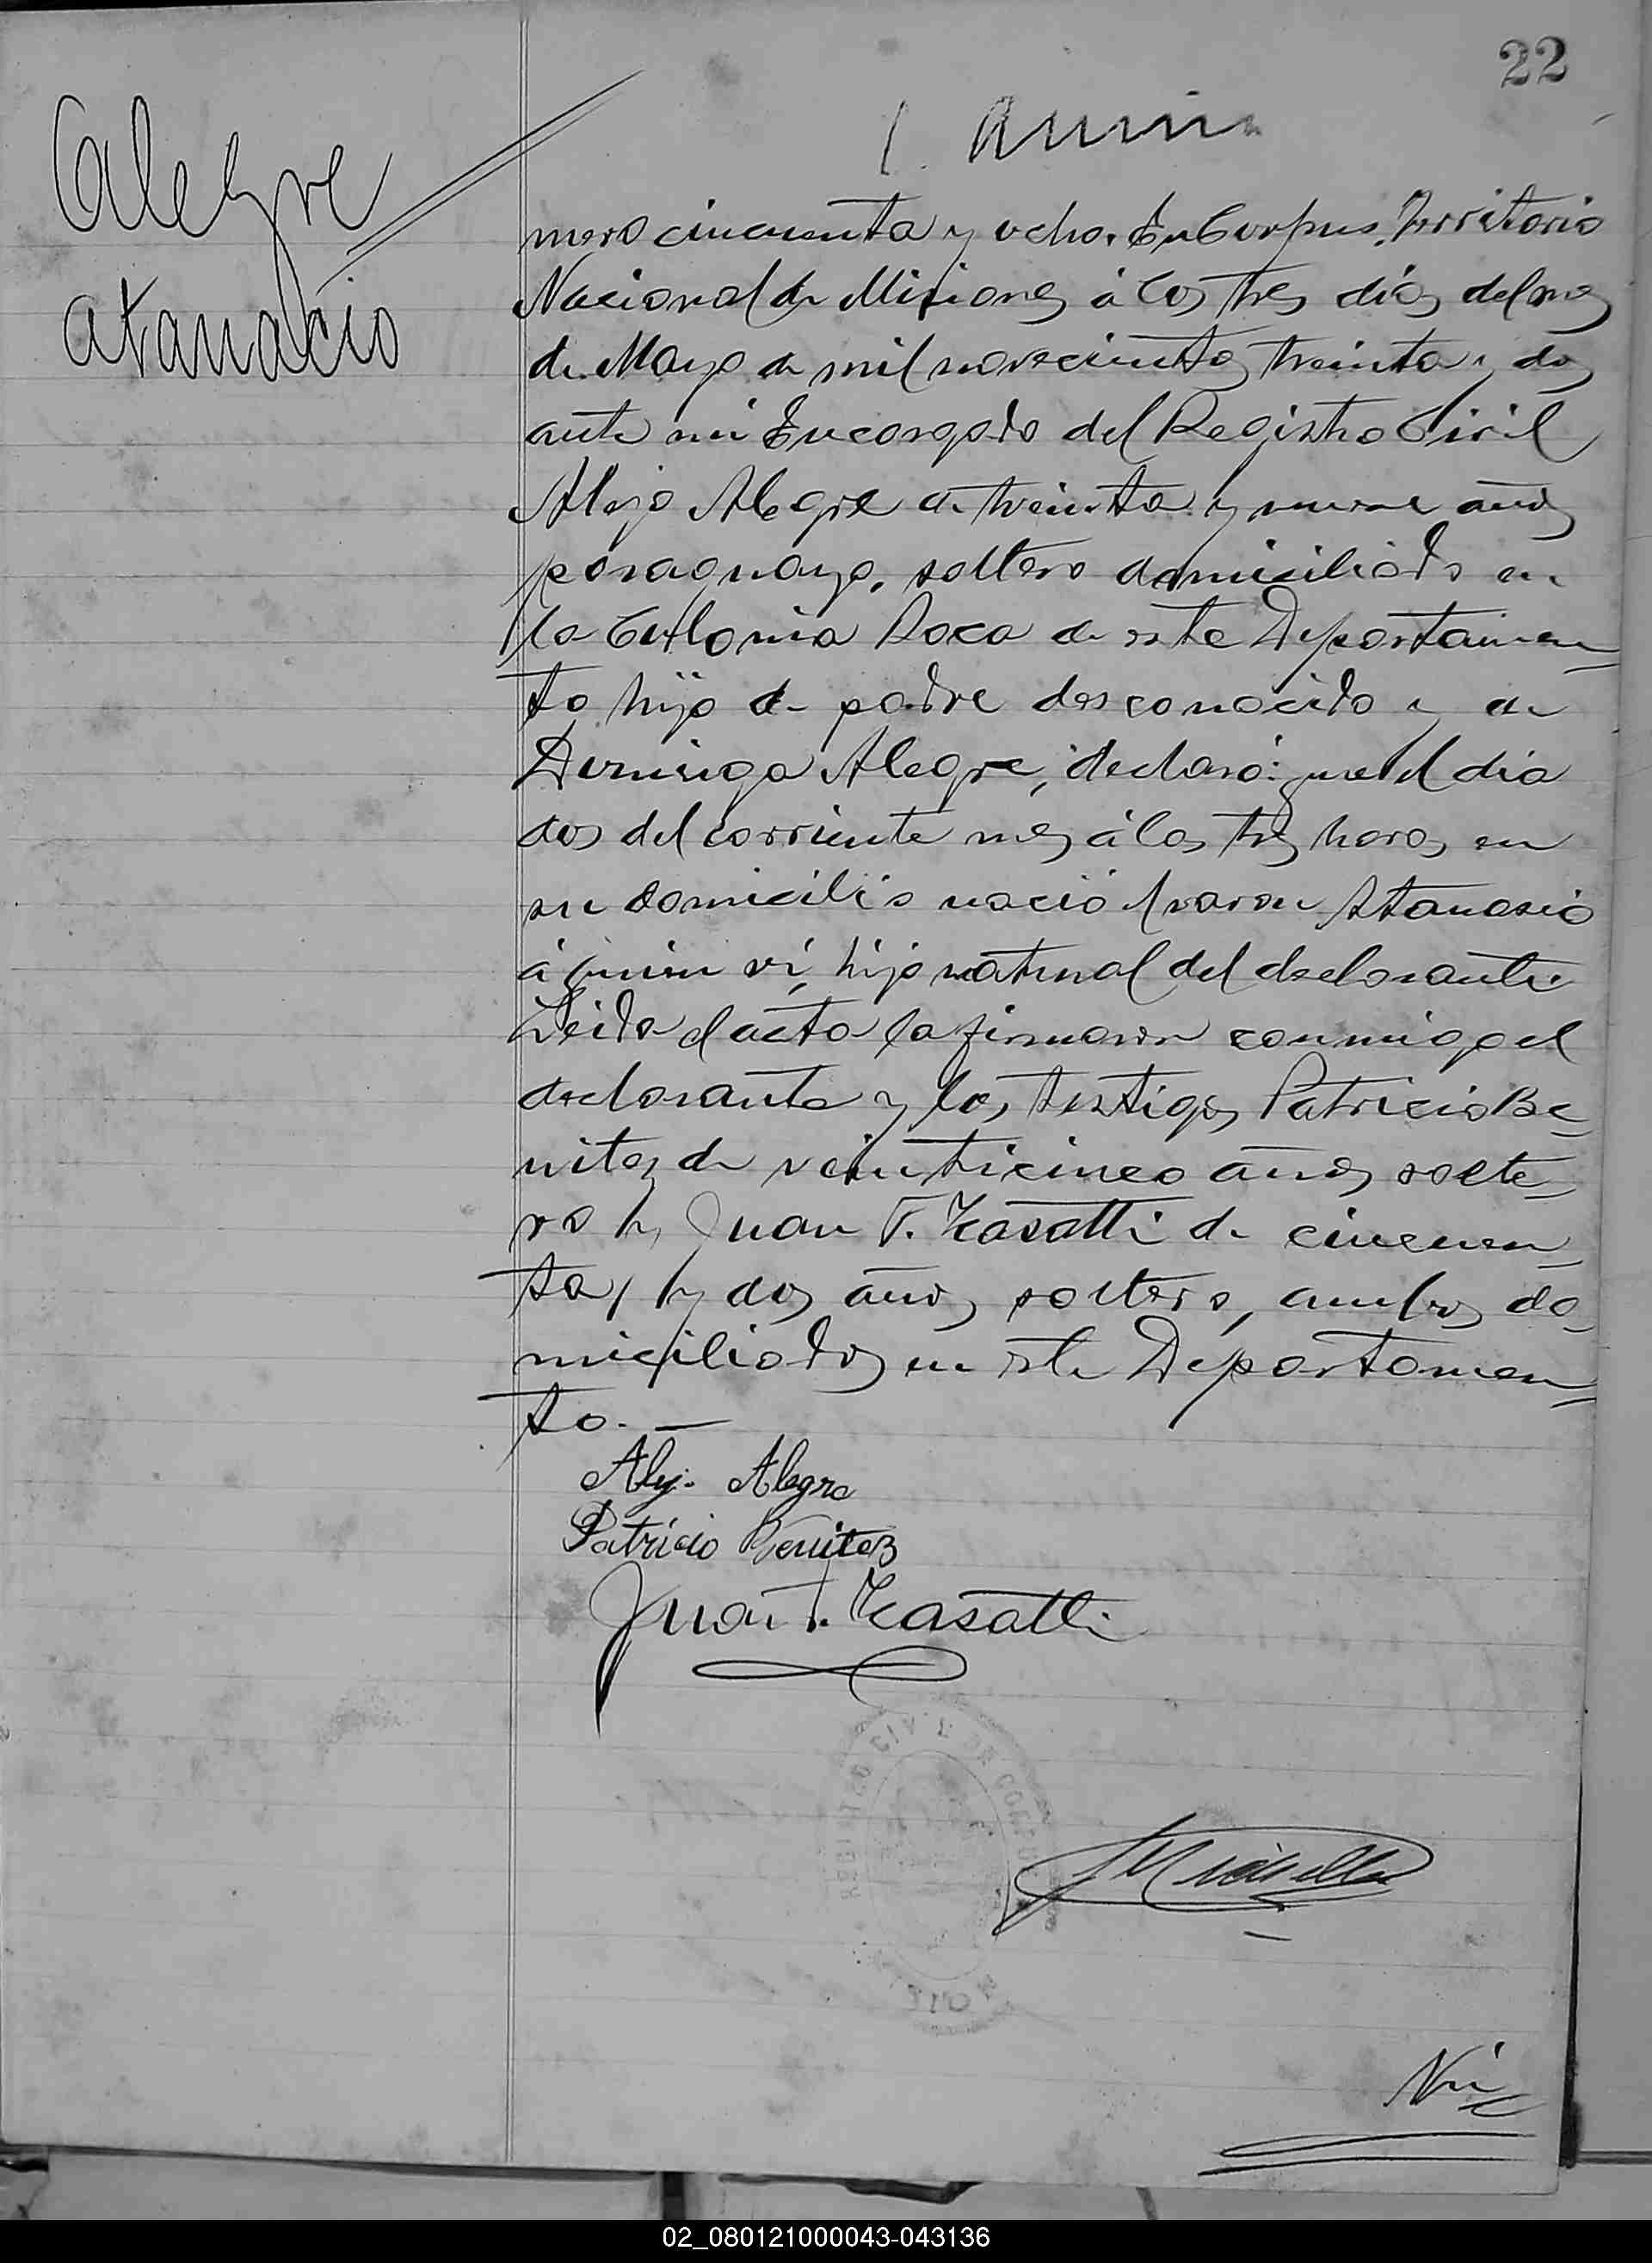 22
Alegre
Atanacio
mero cincuenta y ocho. En Corpus, Territorio
Nacional de Misiones á los tres dias del mes
de Mayo de mil novecientos treinta y dos
ante mi Encargado del Registro Civil
Alejo Alegre de treinta y nueve años
paraguayo, soltero domiciliado en
la Colonia Roca de este Departamen=
to hijo de padre desconocido y de
Dominga Alegre, declaró: que el dia
dos del corriente mes á las tres horas en
su domicilio nació el varon Atanasio
á quien ví, hijo natural del declarante
Leida el acta la firmaron conmigo el
declarante y los testigos Patricio Be=
nitez de veinticinco años solte=
ro y Juan T. Kasatti de cincuen=
ta y dos años soltero, ambos do=
miciliados en este Departamen=
to.—
Alej. Alegre
Patricio Benitez
Juan T. Kasatti
REGISTRO CIVIL DE CORPUS
Nú=
02_080121000043-043136